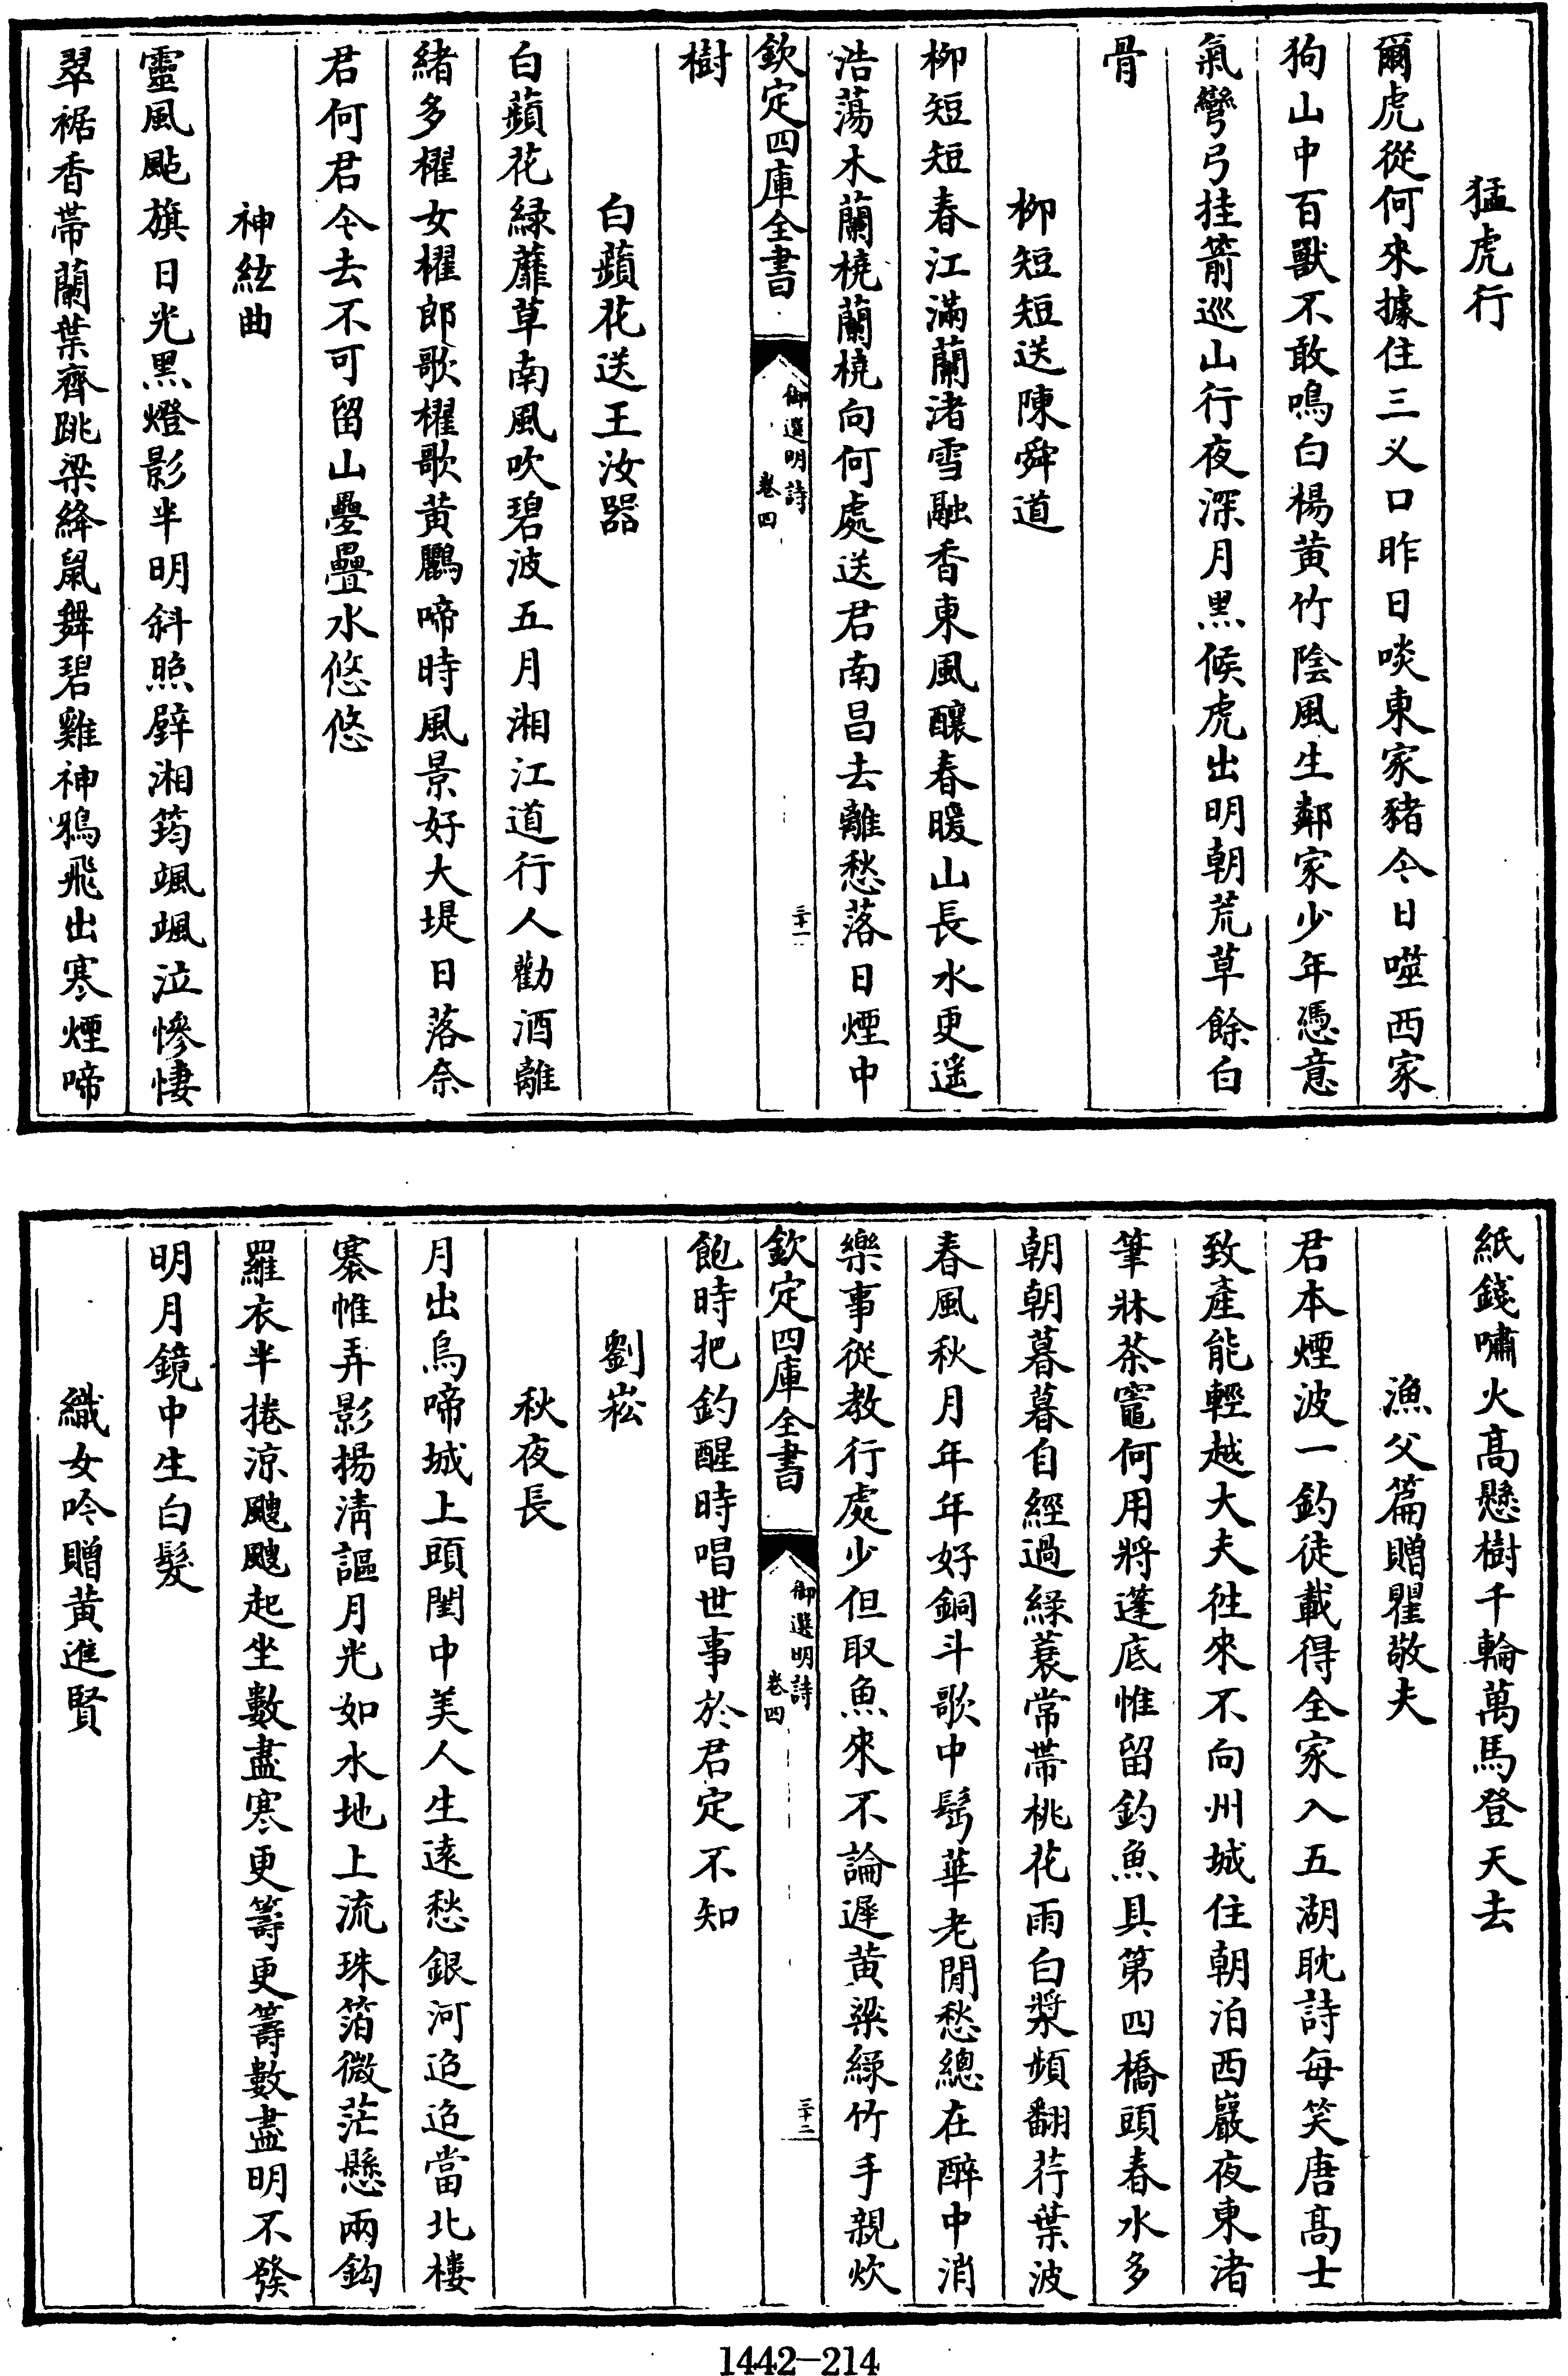 猛虎行
爾虎從何來據住三义口昨日啖東家豬今日噬西家
狗山中百獸不敢鳴白楊黄竹陰風生鄰家少年憑意
氣彎弓挂箭巡山行夜深月黑候虎出明朝荒草餘白
骨
柳短短送陳舜道
柳短短春江滿蘭渚雪融香東風釀春暖山長水更遥
浩蕩木蘭橈蘭橈向何處送君南昌去離愁落日煙中
欽定四庫全書
御選明詩
卷四
三十一
樹
白蘋花送王汝器
白蘋花緑蘼草南風吹碧波五月湘江道行人勸酒離
緒多櫂女櫂郎歌櫂歌黄鸝啼時風景好大堤日落奈
君何君今去不可留山疊疊水悠悠
神絃曲
靈風颭旗日光黑燈影半明斜照壁湘筠颯颯泣慘悽
翠裾香帶蘭葉齊跳梁絳鼠舞碧雞神鴉飛出寒煙啼
紙錢嘯火髙懸樹千輪萬馬登天去
漁父篇贈瞿敬夫
君本煙波一釣徒載得全家入五湖耽詩每笑唐髙士
致產能輕越大夫往來不向州城住朝泊西巖夜東渚
筆牀茶竈何用將蓬底惟留釣魚具第四橋頭春水多
朝朝暮暮自經過緑蓑常帶桃花雨白槳頻翻荇葉波
春風秋月年年好銅斗歌中髩華老閒愁總在醉中消
樂事從教行處少但取魚來不論遲黄粱緑竹手親炊
欽定四庫全書
御選明詩
卷四
三十二
飽時把釣醒時唱世事於君定不知
劉崧
秋夜長
月出烏啼城上頭閨中美人生逺愁銀河迢迢當北樓
褰帷弄影揚清謳月光如水地上流珠箔微茫懸兩鈎
羅衣半捲涼颼颼起坐數盡寒更籌更籌數盡明不發
明月鏡中生白髮
織女吟贈黄進賢
1442-214